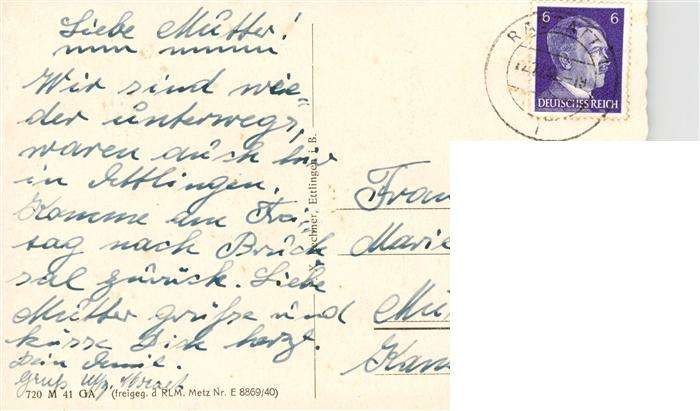 Liebe Mutter!
Wir sind wie-
der unterwegs,
waren auch hir
in Ettlingen.
Komme am Frei
tag nach Bruch
sal zurück. Liebe
Mutter grüße und
küsse Dich herzl.
Dein
Gruß
720 M 41 GA (freigeg. d RLM. Metz Nr. E 8869/40)
Ettlingen i. B.
6 6
DEUTSCHES REICH
Frau
Marie